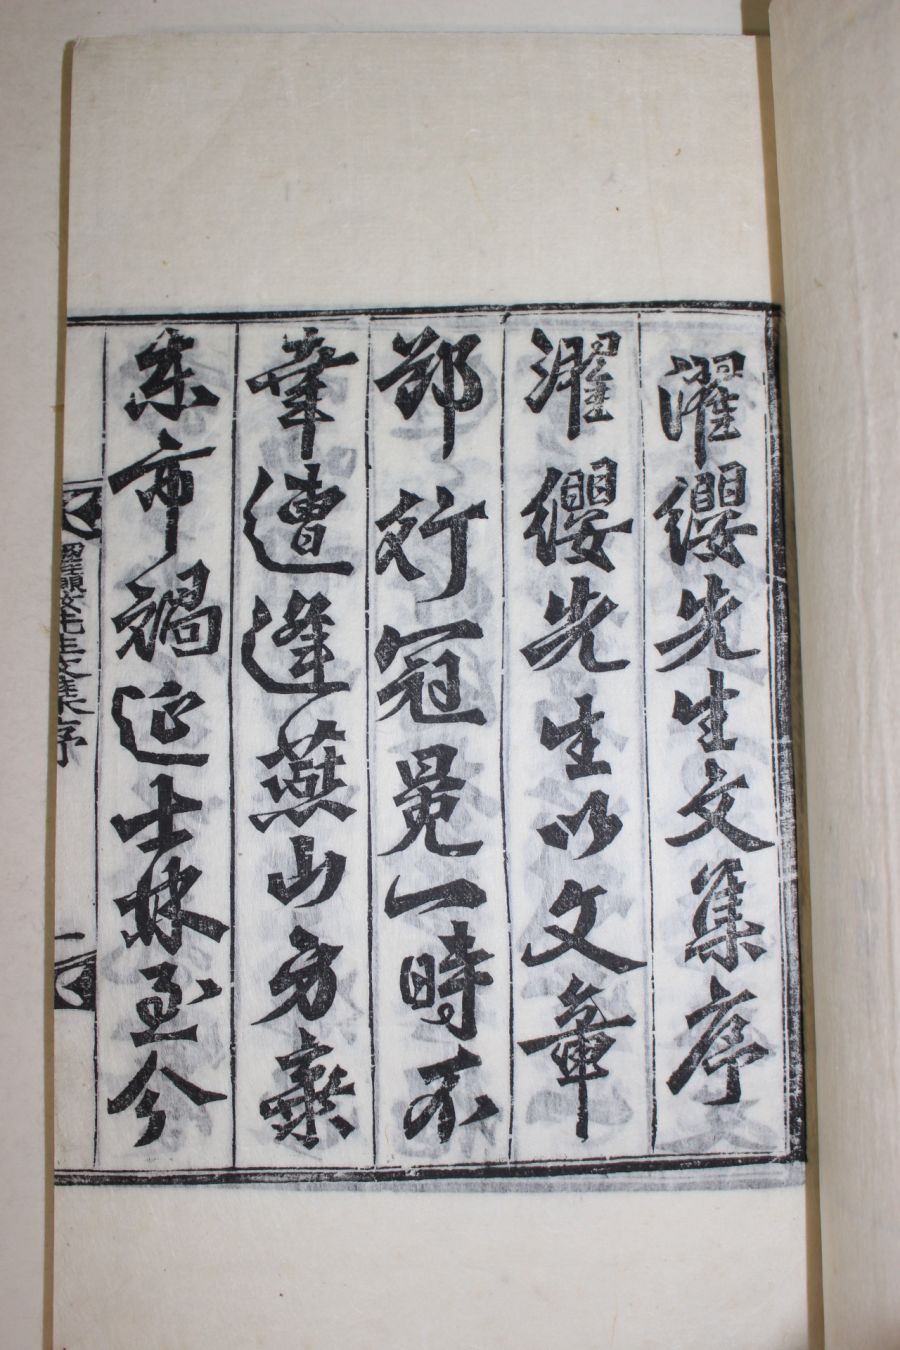 濯纓先生文集序
濯纓先生以文章
節行冠冕一時不
幸遭逢燕山方棄
東市禍延士林至今
濯纓先生文集序
一